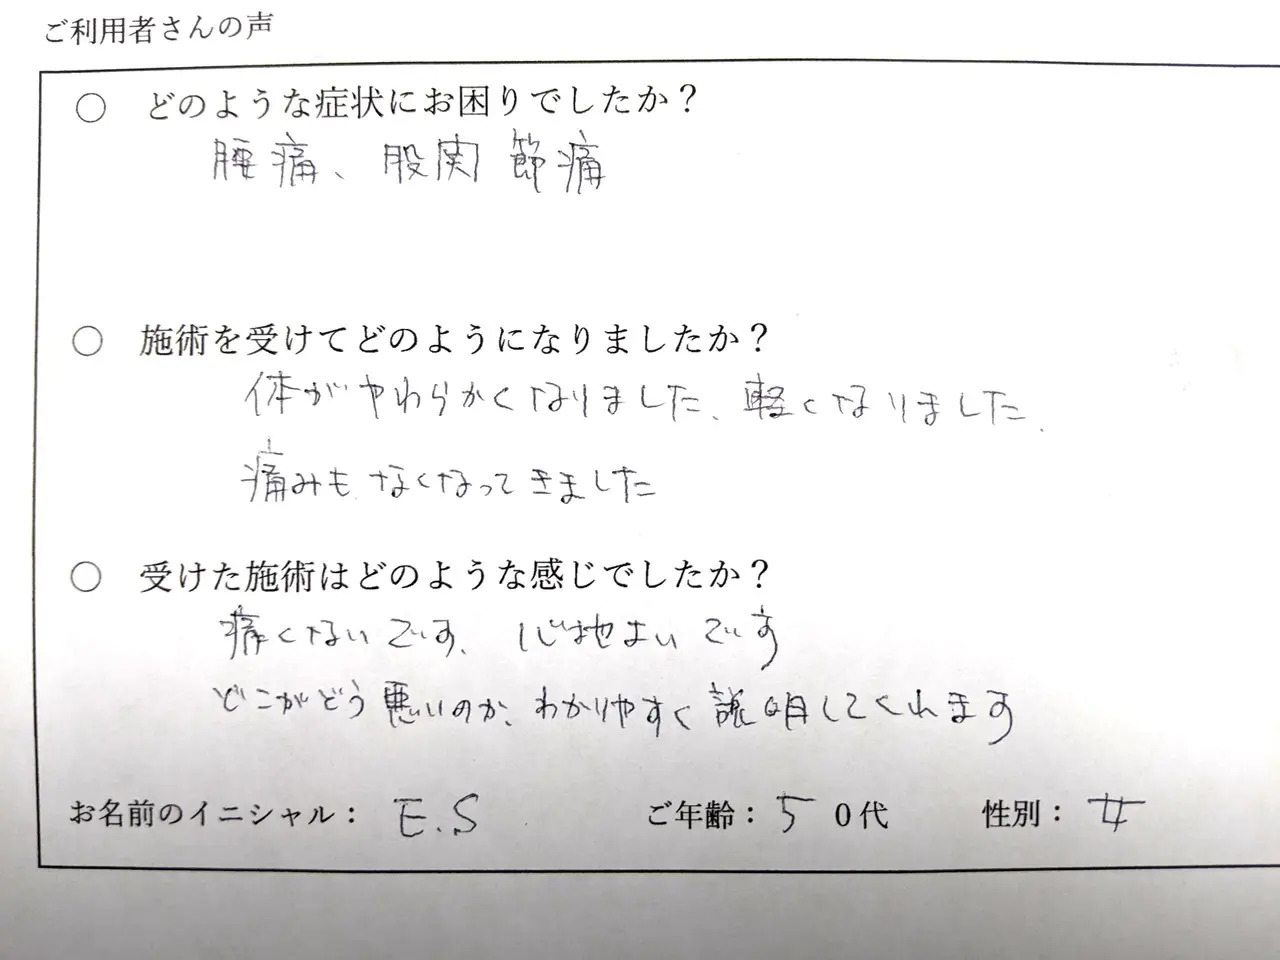 ご利用者さんの声
○ どのような症状にお困りでしたか？
腰痛、股関節痛
○ 施術を受けてどのようになりましたか？
体がやわらかくなりました、軽くなりました、
痛みもなくなってきました
○ 受けた施術はどのような感じでしたか？
痛くないです、心地よいです
どこがどう悪いのか、わかりやすく説明してくれます
お名前のイニシャル： E.S ご年齢：５０代 性別： 女